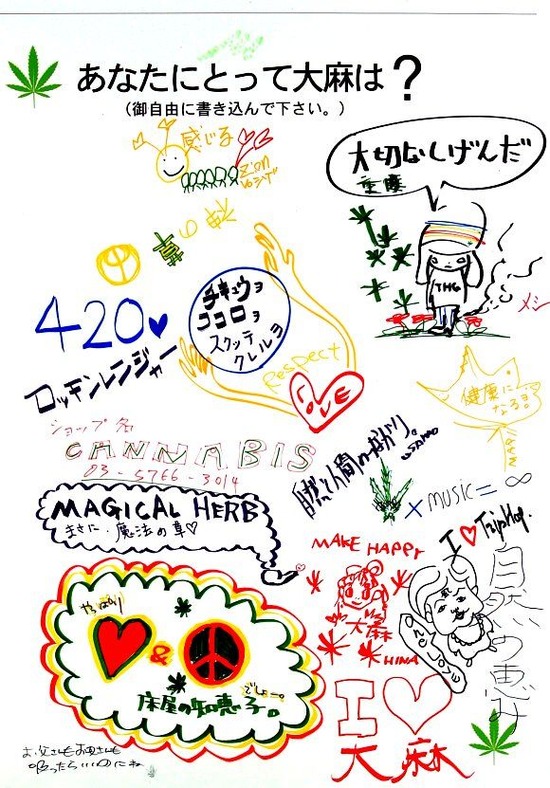 あなたにとって大麻は?
(御自由に書き込んで下さい。)
感じる
Z'ON
大切なしげんだ
THG
メシ
420
チキュウヲ
ココロヲ
スクッテ
クレルヨ
ロッキンレンジャー
Respect
LOVE
健康に
なるヨ。
ショップ名
CANNABIS
03-5766-3014
自然と人間のつながり。
× music = ∞
MAGICAL HERB
まさに、魔法の草♡
I ♥ TripHop.
MAKE HAPPY
大麻
HINA
ONE LOVE
自然の恵み
やっぱり
&
床屋の知恵
でしょー。
I ♡
大麻
お父さんもお母さんも
吸ったら…のにね